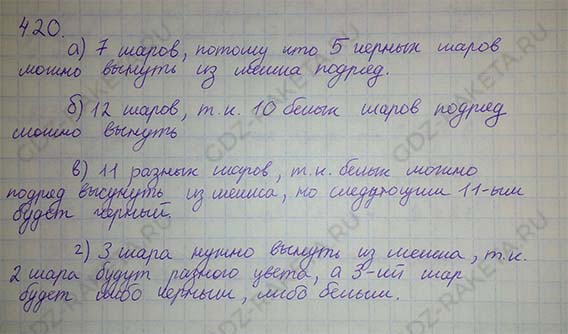 420.
а) 7 шаров, потому что 5 черных шаров
можно вынуть из мешка подряд.
б) 12 шаров, т.к. 10 белых шаров подряд
можно вынуть
в) 11 разных шаров, т.к. белых можно
подряд высунуть из мешка, но следующим 11-ым
будет черный.
г) 3 шара нужно вынуть из мешка, т.к.
2 шара будут разного цвета, а 3-ий шар
будет либо черным, либо белым.
GDZ-RAKETA.RU